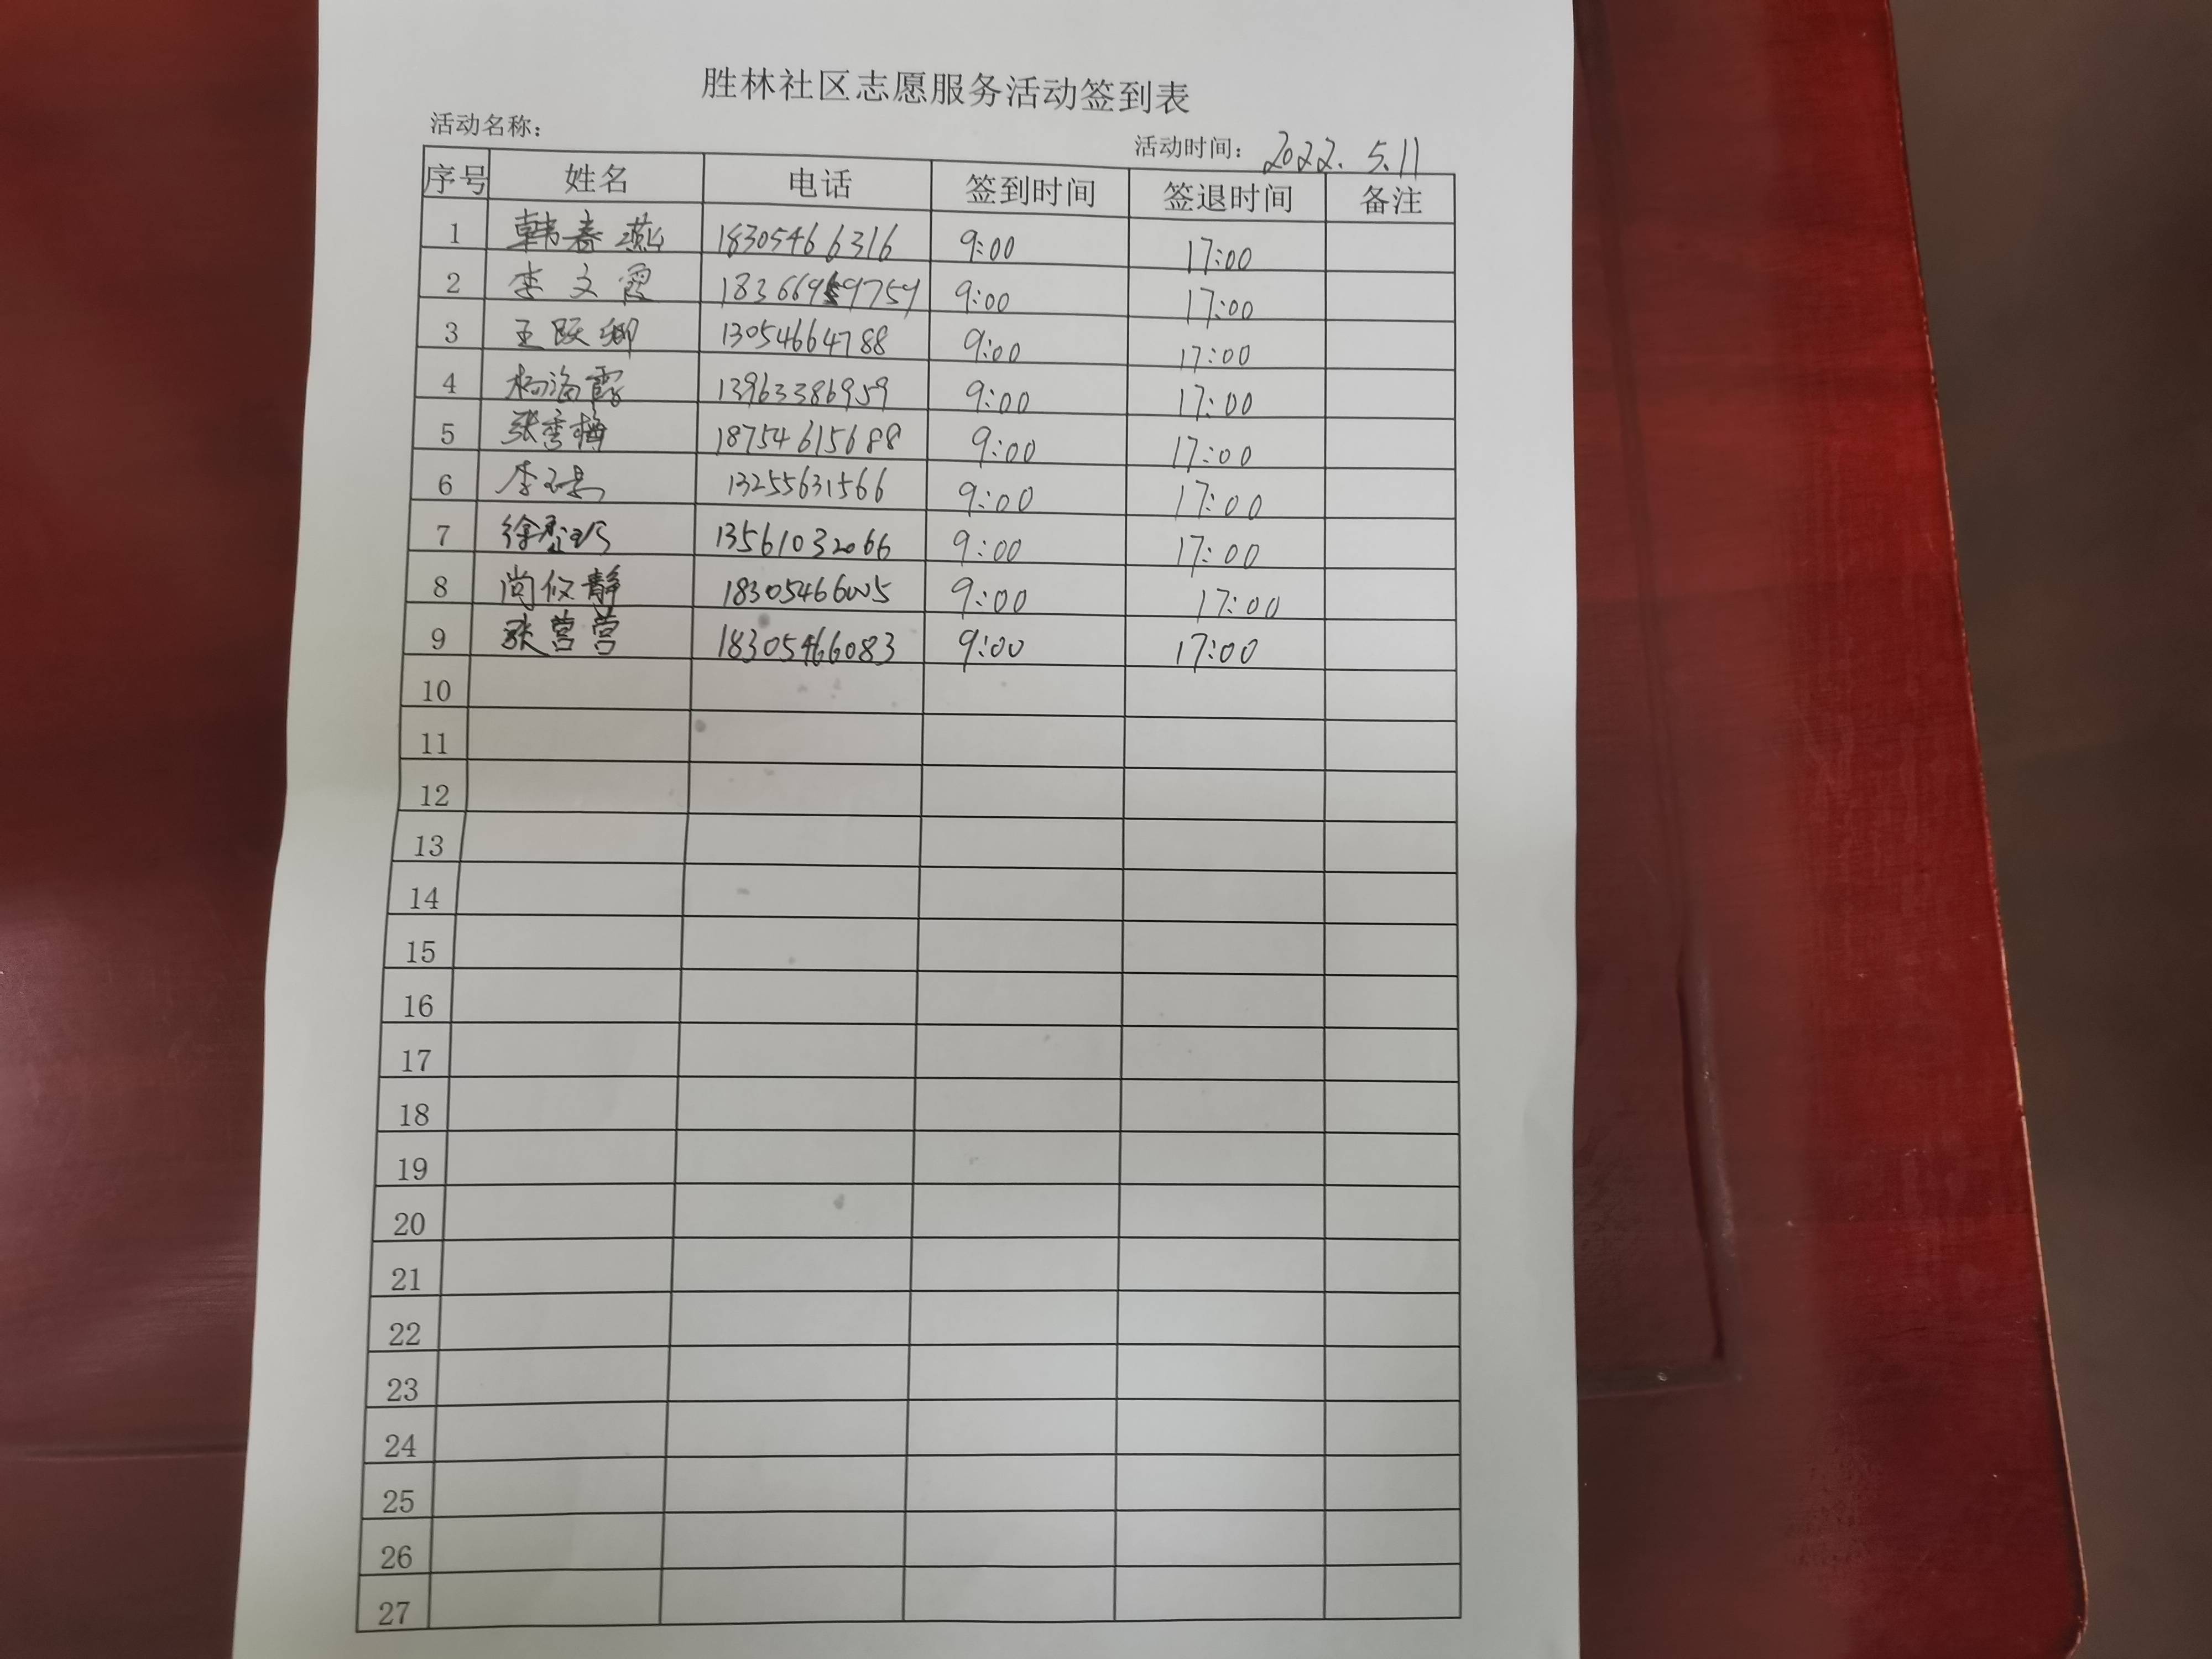 胜林社区志愿服务活动签到表
活动名称：
活动时间：2022.5.11
序号 姓名 电话 签到时间 签退时间 备注
1 韩春燕 18305466316 9:00 17:00
2 李文霞 9:00 17:00
3 王跃卿 13054664788 9:00 17:00
4 杨海霞 13963386959 9:00 17:00
5 张秀梅 18754615688 9:00 17:00
6 13255631566 9:00 17:00
7 13561032066 9:00 17:00
8 18305466005 9:00 17:00
9 张营营 18305466083 9:00 17:00
10
11
12
13
14
15
16
17
18
19
20
21
22
23
24
25
26
27